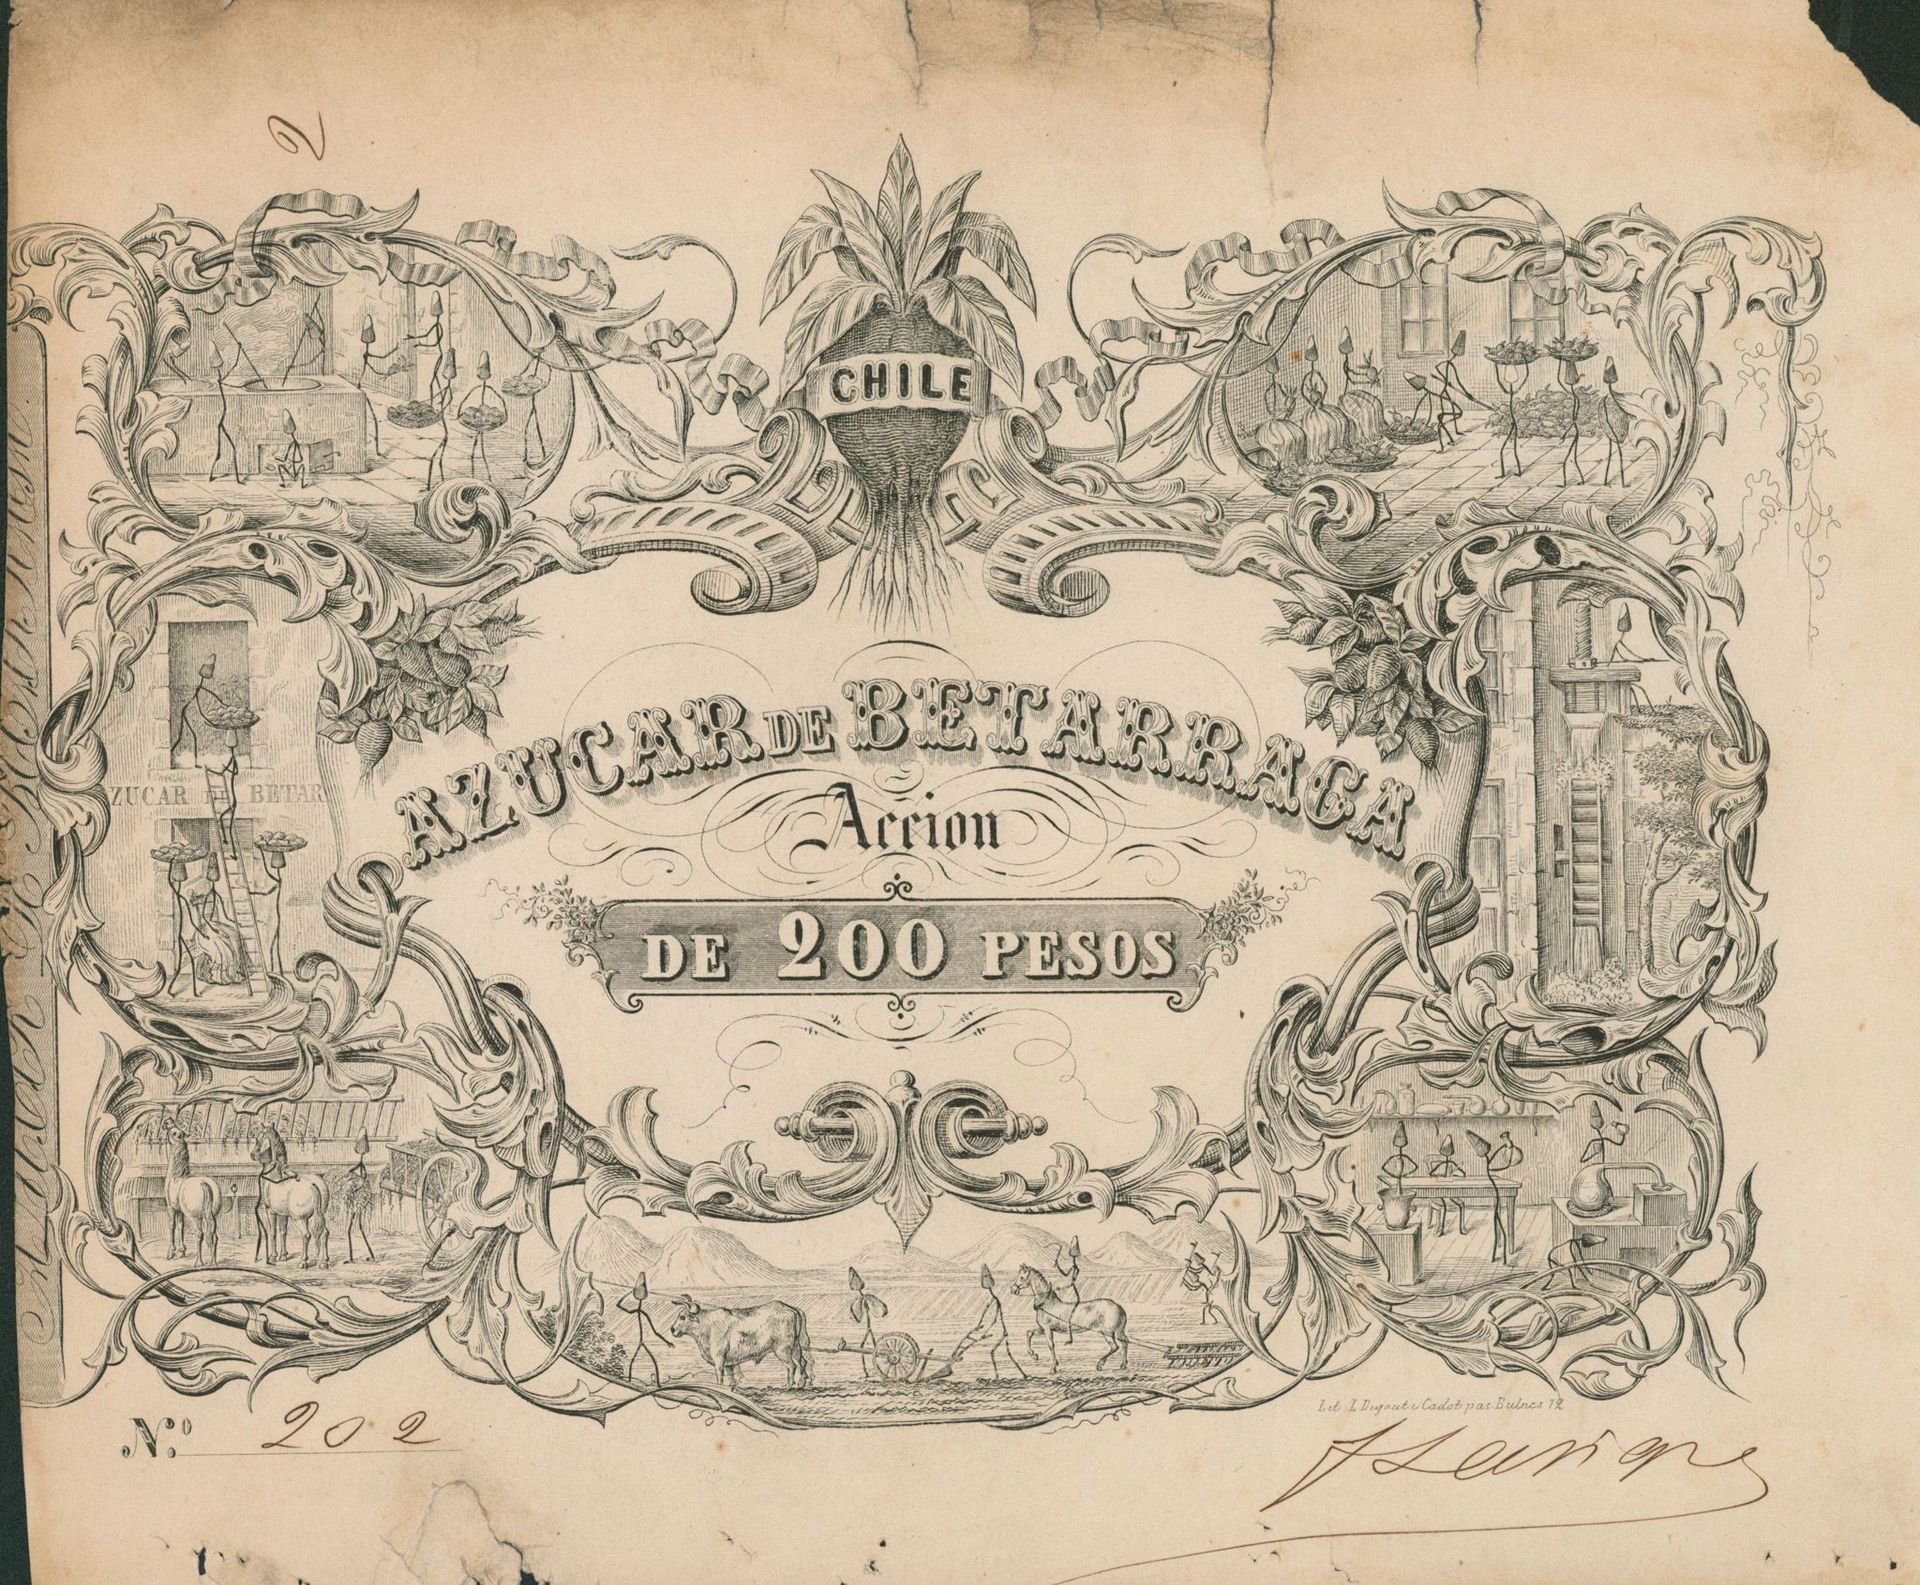 2
CHILE
AZUCAR DE BETARRAGA
Accion
DE 200 PESOS
ZUCAR DE BETAR
N.º 202
Lit. I. Digout i Cadot pas. Bulnes 12